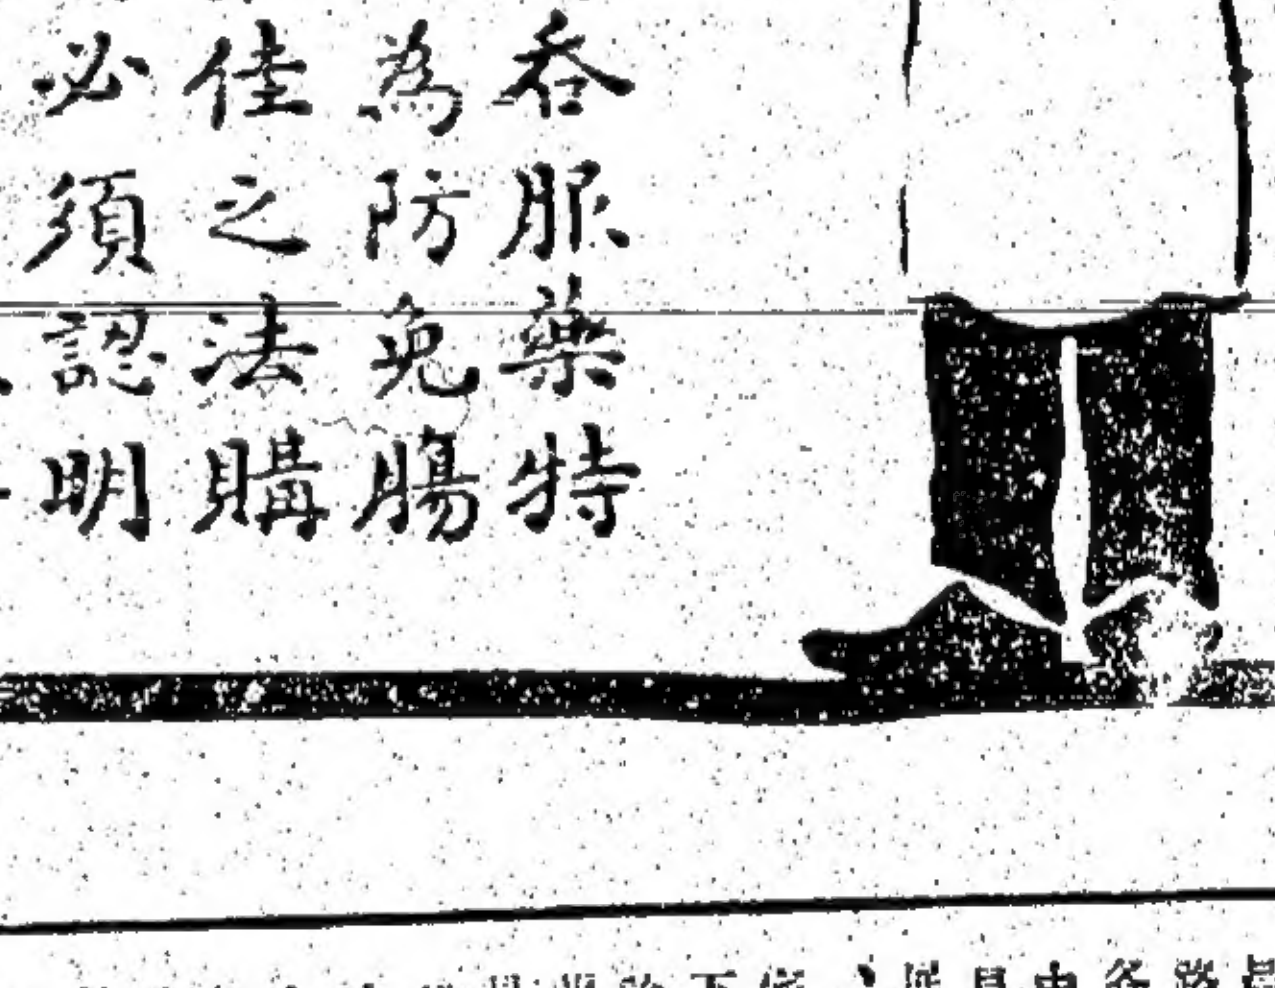 吞服藥特
為防免腸
佳之法購
必須認明